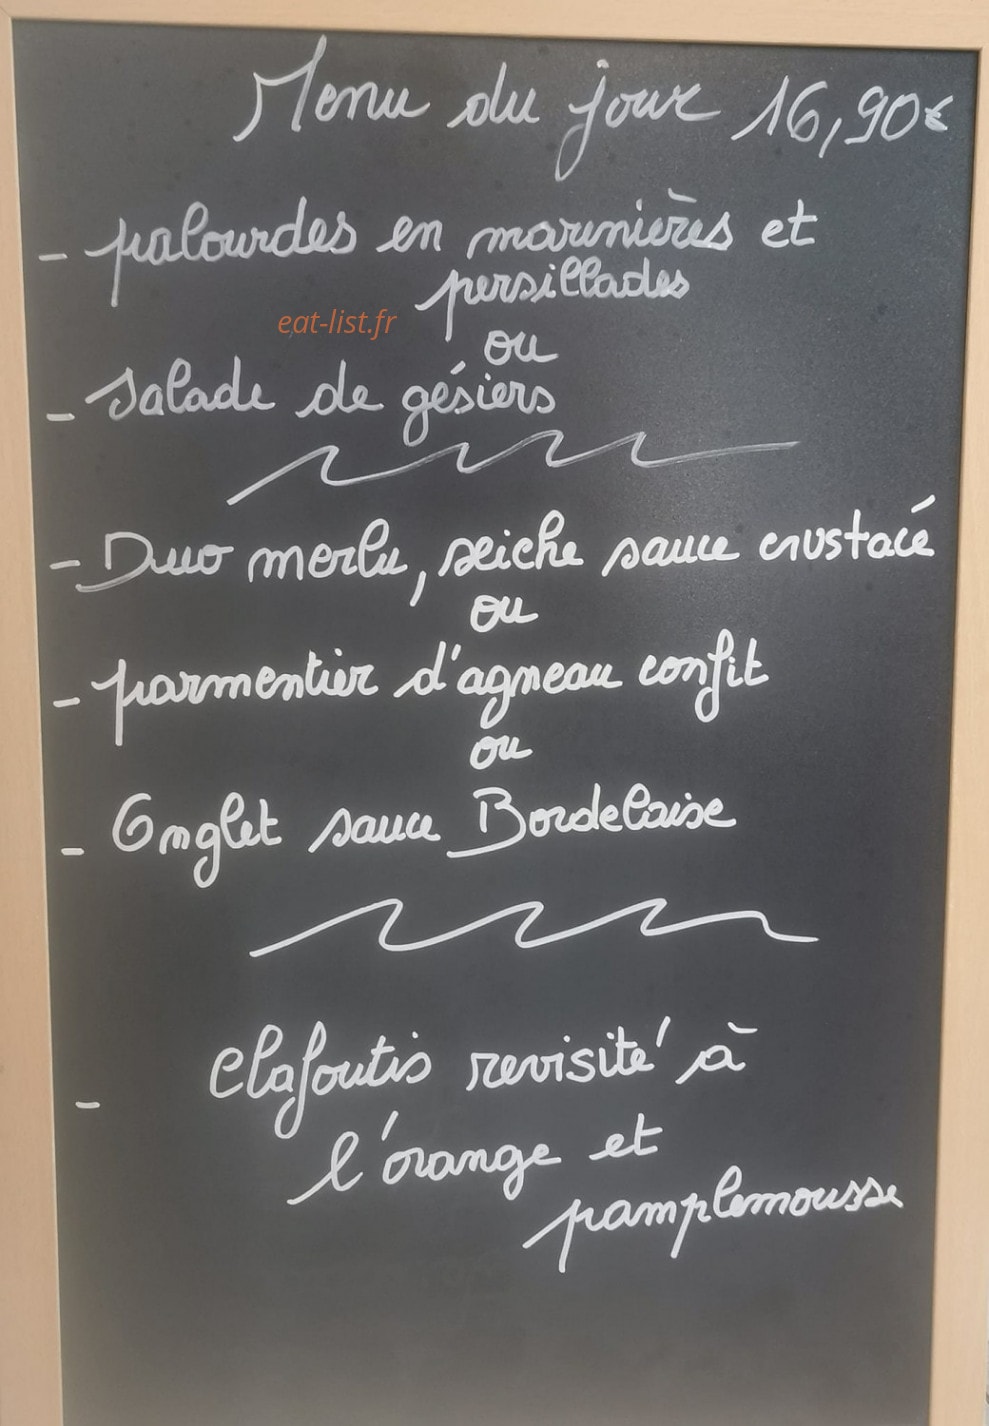 Menu du jour 16,90€
- palourdes en marinières et
persillades
eat-list.fr
ou
- Salade de gésiers
- Duo merlu, seiche sauce crustacé
ou
- parmentier d'agneau confit
ou
- Onglet sauce Bordelaise
- Clafoutis revisité à
l'orange et
pamplemousse